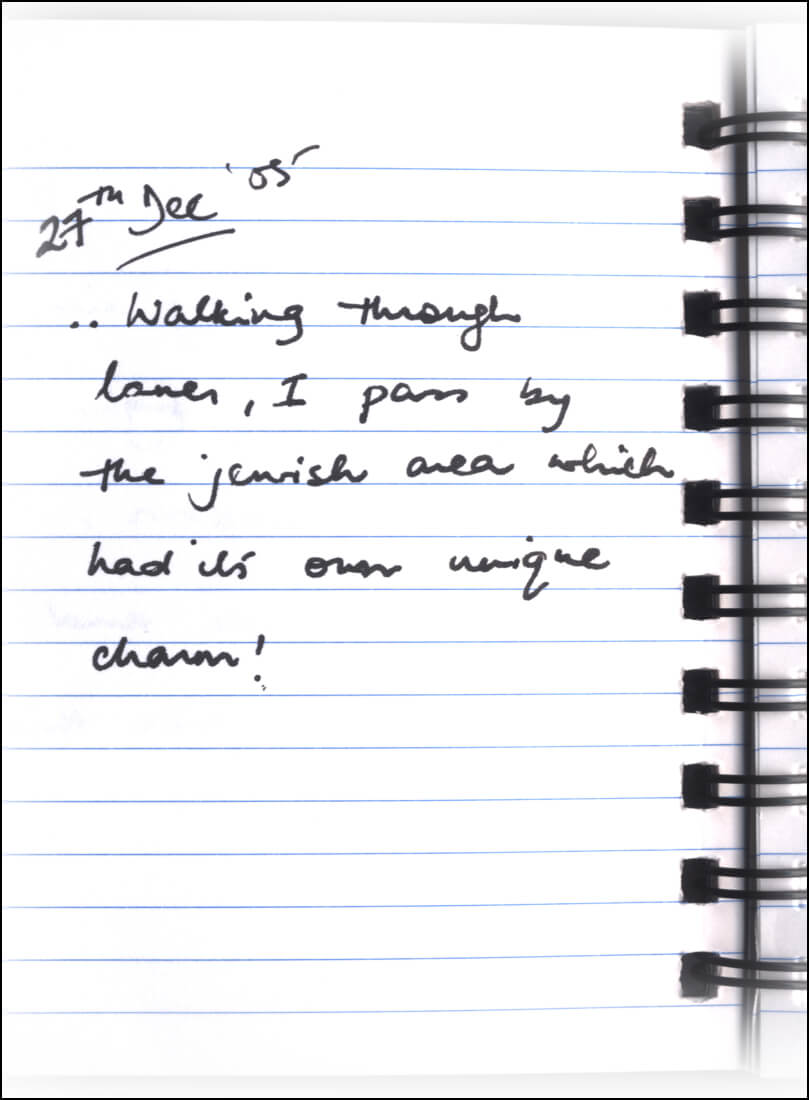 27th Dec '05
.. Walking through
lanes, I pass by
the jewish area which
had it's own unique
charm!